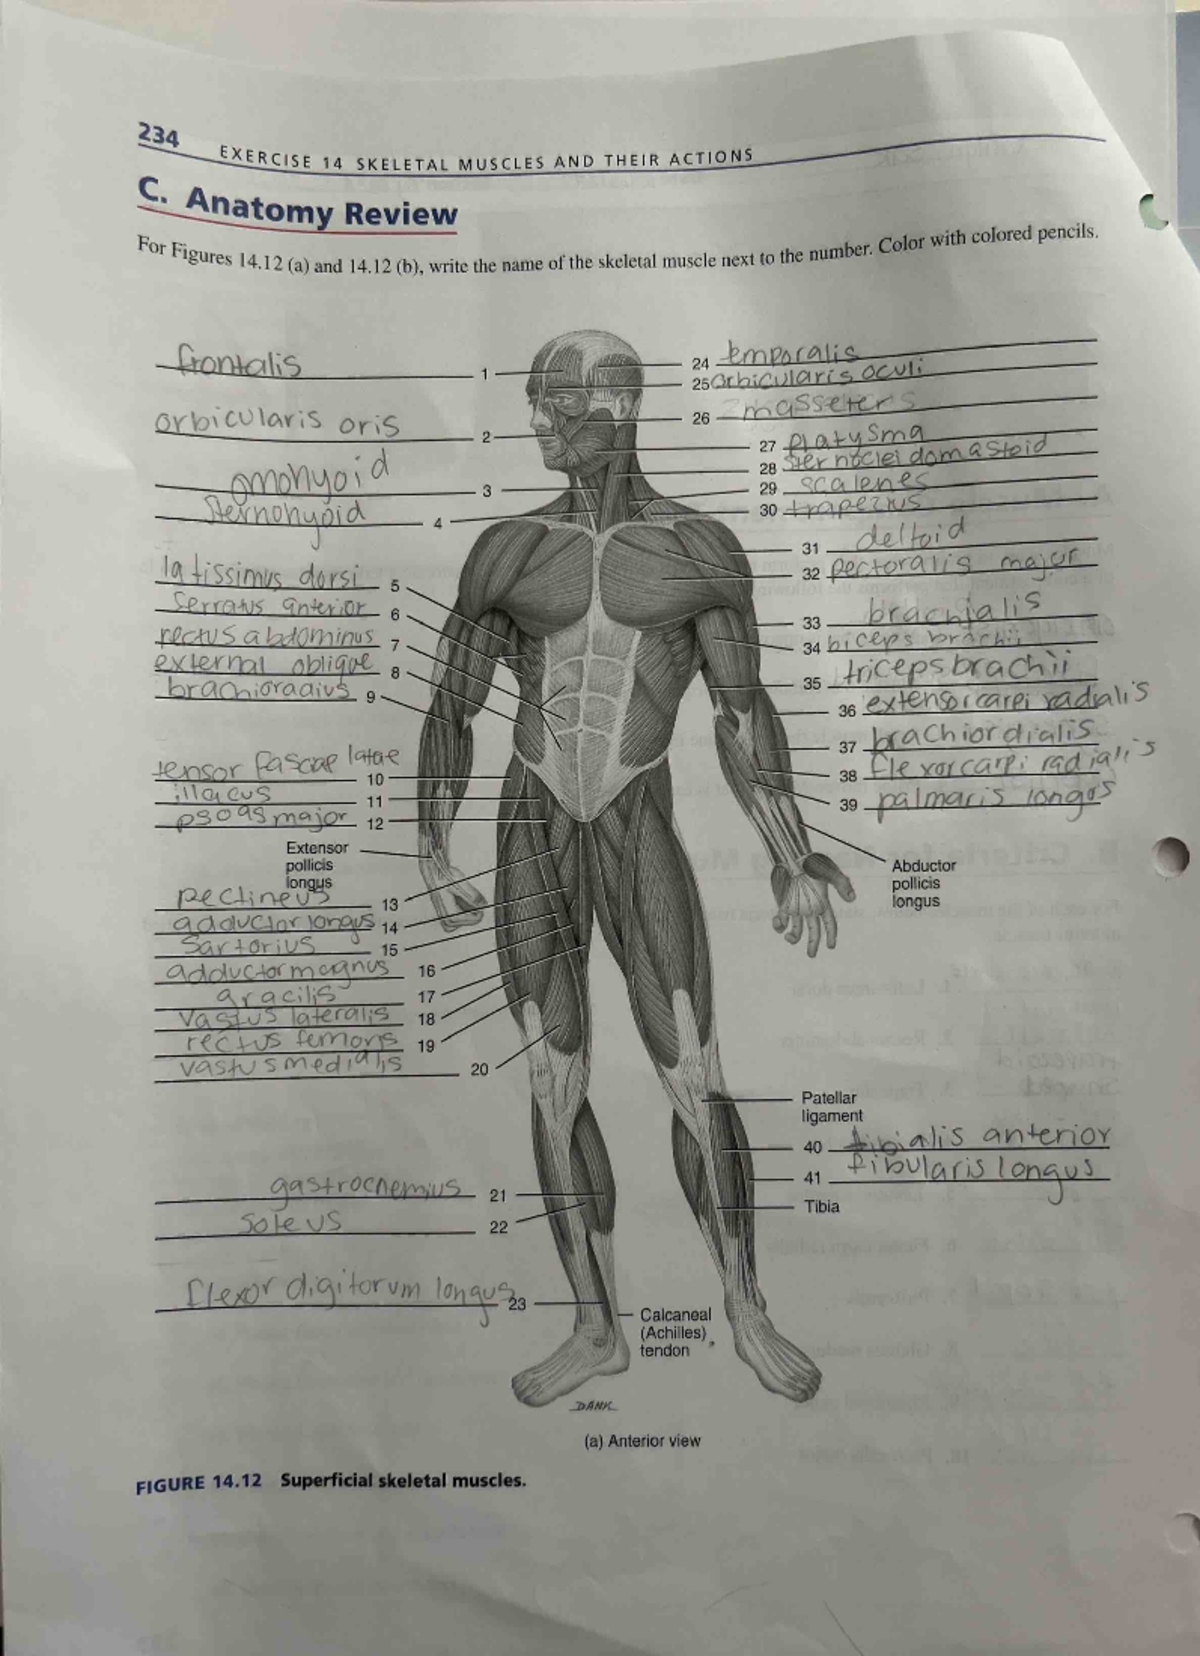 234
EXERCISE 14 SKELETAL MUSCLES AND THEIR ACTIONS
C. Anatomy Review
For Figures 14.12 (a) and 14.12 (b), write the name of the skeletal muscle next to the number. Color with colored pencils.
frontalis 1
orbicularis oris 2
omohyoid 3
Sternohyoid 4
latissimus dorsi 5
Serratus anterior 6
rectus abdominus 7
external oblique 8
brachioradius 9
tensor fasciae latae 10
illacus 11
psoas major 12
Extensor
pollicis
longus
pectineus 13
adductor longus 14
Sartorius 15
adductor magnus 16
gracilis 17
Vastus lateralis 18
rectus femoris 19
vastus medialis 20
gastrocnemius 21
Soleus 22
flexor digitorum longus 23
24 temporalis
25 orbicularis oculi
26 masseters
27 Platysma
28 sternocleidomastoid
29 scalenes
30 trapezius
31 deltoid
32 pectoralis major
33 brachialis
34 biceps brachii
35 triceps brachii
36 extensor carpi radialis
37 brachiordialis
38 flexor carpi radialis
39 palmaris longus
Abductor
pollicis
longus
Patellar
ligament
40 tibialis anterior
41 fibularis longus
Tibia
Calcaneal
(Achilles)
tendon
DANK
(a) Anterior view
FIGURE 14.12 Superficial skeletal muscles.